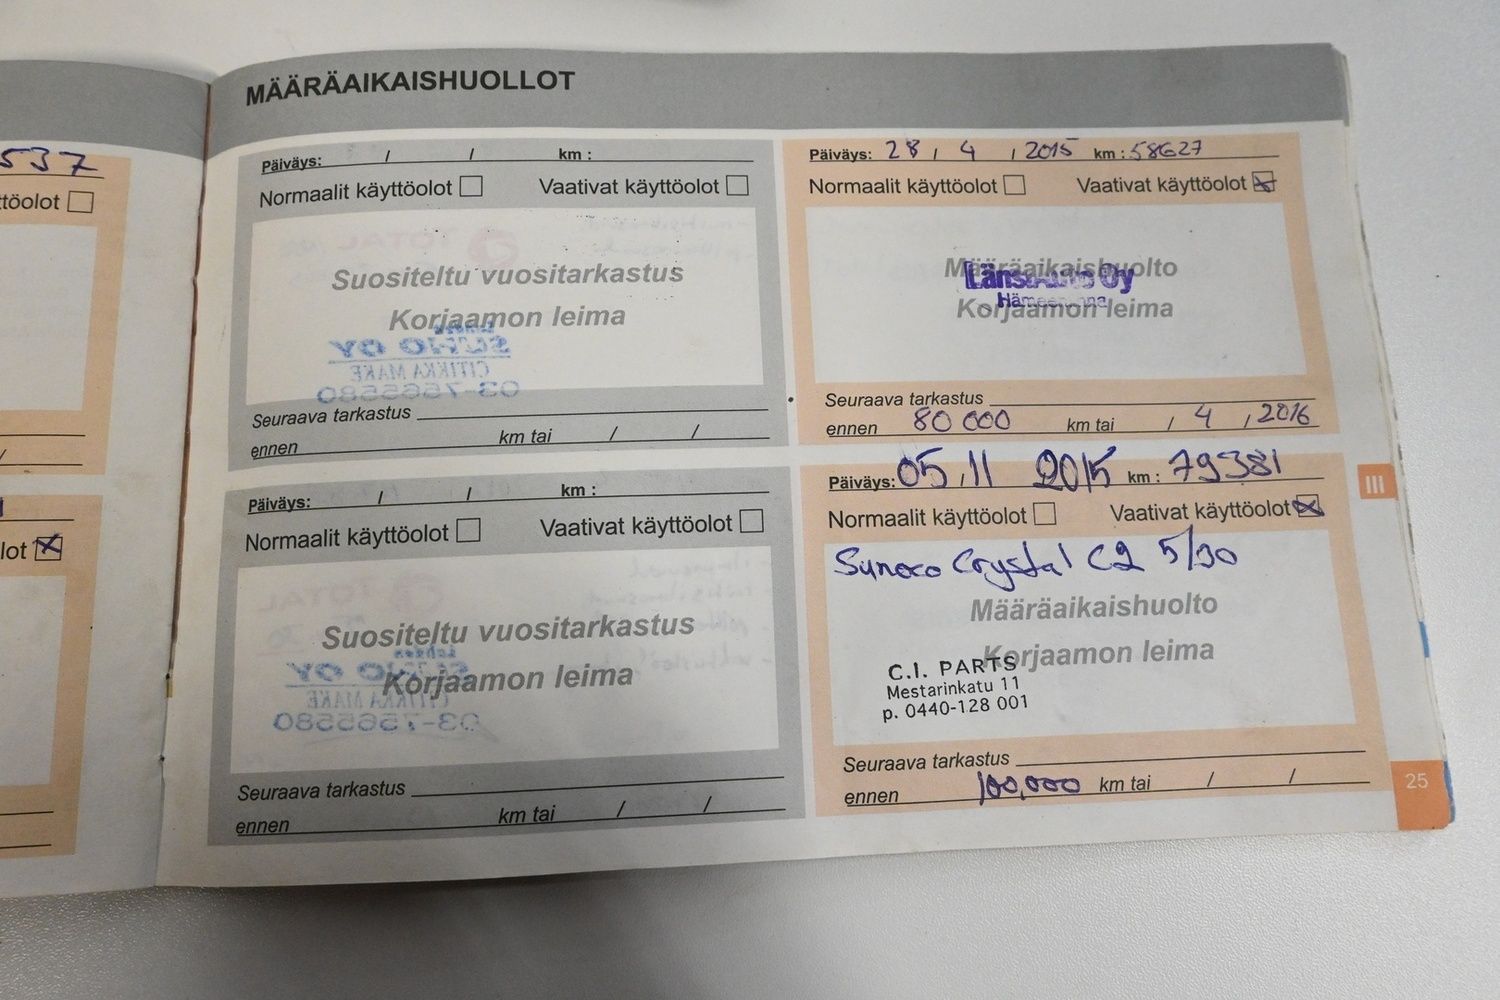 537
ttöolot
lot
MÄÄRÄAIKAISHUOLLOT
Päiväys: / / km :
Normaalit käyttöolot Vaativat käyttöolot
Suositeltu vuositarkastus
Korjaamon leima
SUNO OY
CITIKKA MAKE
03-7565580
Seuraava tarkastus
ennen km tai / /
Päiväys: 28 / 4 / 2015 km : 58627
Normaalit käyttöolot Vaativat käyttöolot
Määräaikaishuolto
Länsi-Auto Oy
Hämeenlinna
Korjaamon leima
Seuraava tarkastus
ennen 80 000 km tai / 4 / 2016
Päiväys: / / km :
Normaalit käyttöolot Vaativat käyttöolot
Suositeltu vuositarkastus
Lahden
SUNO OY
Korjaamon leima
CITIKKA MAKE
03-7565580
Seuraava tarkastus
ennen km tai / /
Päiväys: 05 / 11 2015 km : 79381
Normaalit käyttöolot Vaativat käyttöolot
Sunoco Crystal C2 5/30
Määräaikaishuolto
Korjaamon leima
C.I. PARTS
Mestarinkatu 11
p. 0440-128 001
Seuraava tarkastus
ennen 100,000 km tai / /
III
25